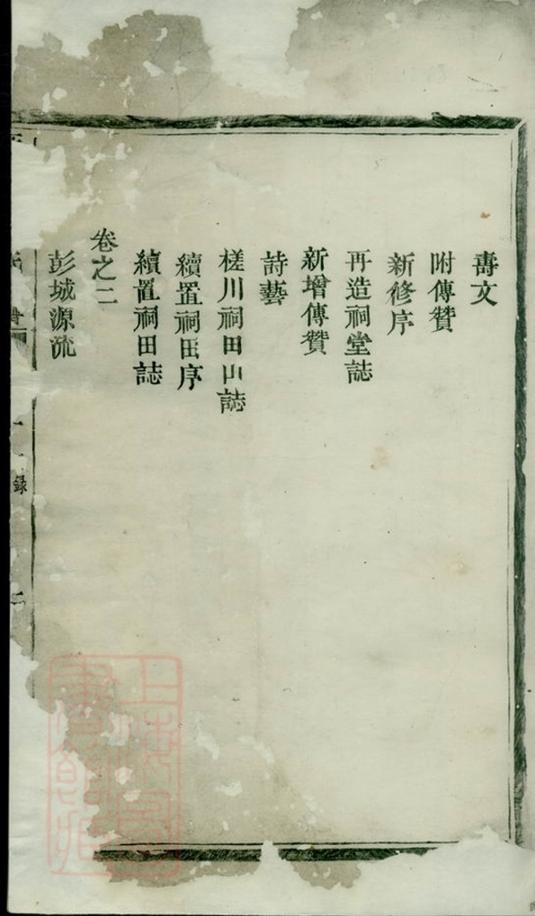 壽文
附傳贊
新修序
再造祠堂誌
新增傳贊
詩藝
槎川祠田山誌
續置祠田序
續置祠田誌
卷之二
彭城源流
錄